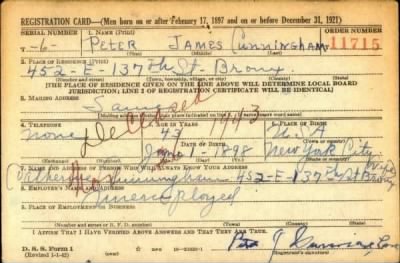 REGISTRATION CARD—(Men born on or after February 17, 1897 and on or before December 31, 1921)
SERIAL NUMBER 1. NAME (Print) ORDER NUMBER
T- -6- Peter James Cunningham 11715
(First) (Middle) (Last)
2. PLACE OF RESIDENCE (Print)
452-E-137th St. Bronx
(Number and street) (Town, township, village, or city) (County) (State)
[THE PLACE OF RESIDENCE GIVEN ON THE LINE ABOVE WILL DETERMINE LOCAL BOARD
JURISDICTION; LINE 2 OF REGISTRATION CERTIFICATE WILL BE IDENTICAL]
3. MAILING ADDRESS
Same
[Mailing address if other than place indicated on line 2. If same insert word same]
Deceased 1943
4. TELEPHONE 5. AGE IN YEARS 6. PLACE OF BIRTH
None 43 U.S.A
DATE OF BIRTH
1 - 1898 New York City
7. NAME AND ADDRESS OF PERSON WHO WILL ALWAYS KNOW YOUR ADDRESS
Catherine Cunningham - 452-E-137th St Bronx
8. EMPLOYER'S NAME AND ADDRESS
Unemployed
9. PLACE OF EMPLOYMENT OR BUSINESS
(Number and street or R. F. D. number) (Town) (County) (State)
I AFFIRM THAT I HAVE VERIFIED ABOVE ANSWERS AND THAT THEY ARE TRUE.
D. S. S. Form 1
(Revised 1-1-42) (over)
Peter J Cunningham
(Registrant's signature)